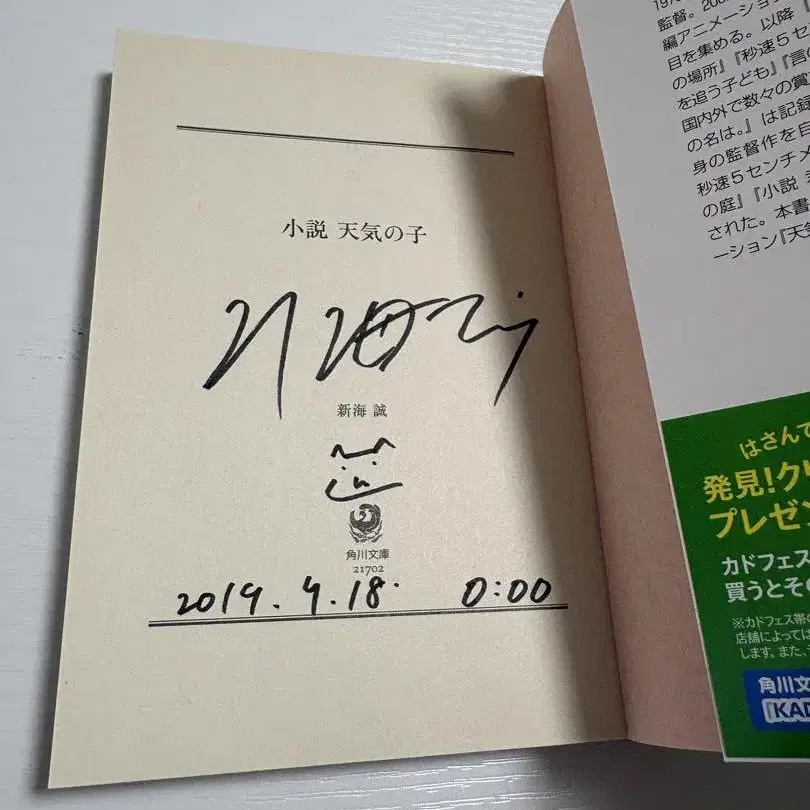 小説 天気の子
新海 誠
角川文庫
21702
2019. 7.18. 0:00
197
監督。200
編アニメーショ
目を集める。以降『
の場所』『秒速5セン
を追う子ども』『言の
国内外で数々の賞
の名は。』は記録
身の監督作を自
秒速5センチメ
の庭』『小説
された。本書
ーション『天気
はさんで
発見!ク
プレゼ
カドフェス
買うとそ
※カドフェス帯の
店舗によっては
します。また、
角川文
『KAD